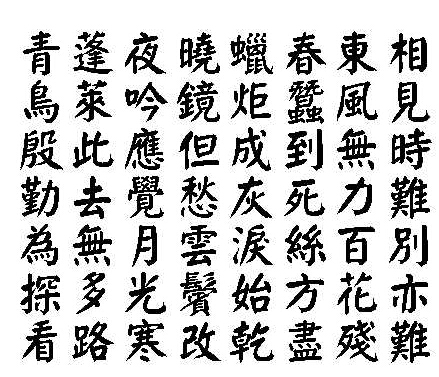 相見時難別亦難
東風無力百花殘
春蠶到死絲方盡
蠟炬成灰淚始乾
曉鏡但愁雲鬢改
夜吟應覺月光寒
蓬萊此去無多路
青鳥殷勤為探看